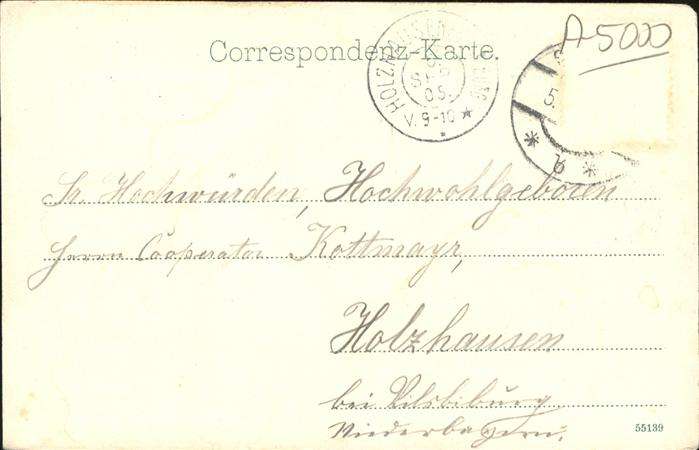 A-5000
Correspondenz-Karte.
HOLZHAUSEN
SEP
05.
V. 9-10 ★
5.
* b *
Sr. Hochwürden, Hochwohlgeboren
Herrn Cooperator Kottmayr,
Holzhausen
bei Vilsbiburg
Niederbayern.
55139